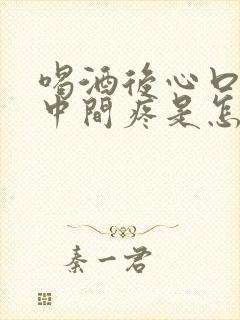 喝酒後心口
中間疼是怎
秦一君